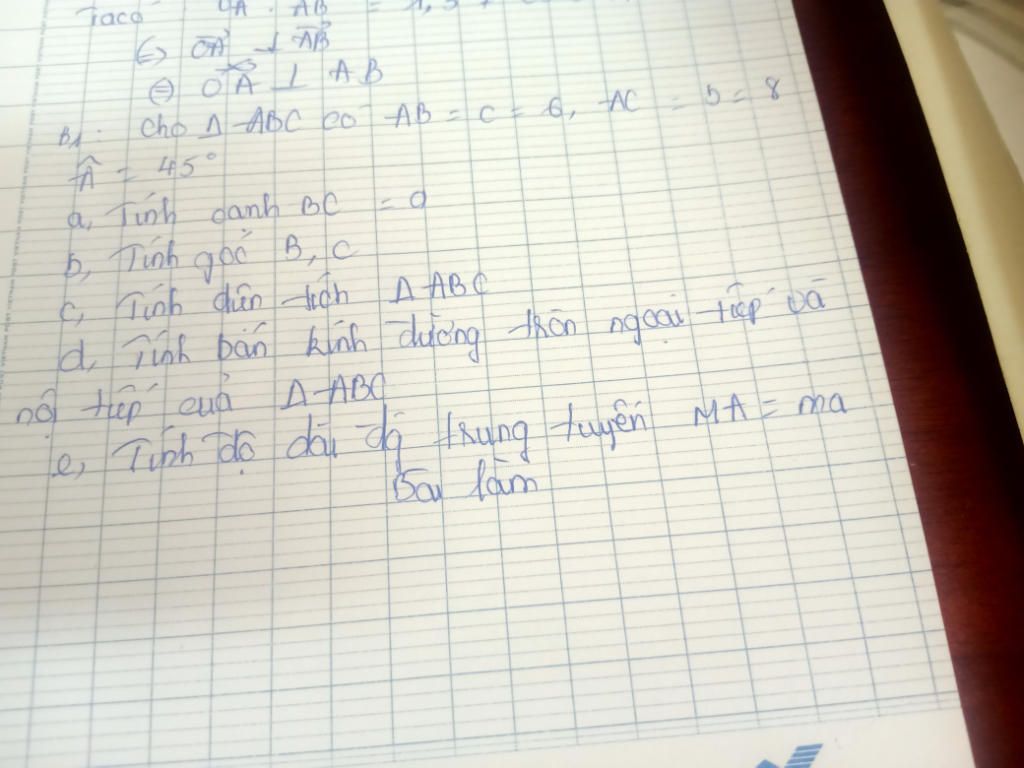 Taco OA . AB =
⇔ OA ⊥ AB
⇔ OA ⊥ AB
B1: Cho Δ ABC có AB = c = 6, AC = b = 8
Â = 45°
a, Tính cạnh BC = a
b, Tính góc B, C
c, Tính diện tích Δ ABC
d, Tính bán kính đường tròn ngoại tiếp và
nội tiếp của Δ ABC
e, Tính độ dài đg trung tuyến MA = ma
Bài làm